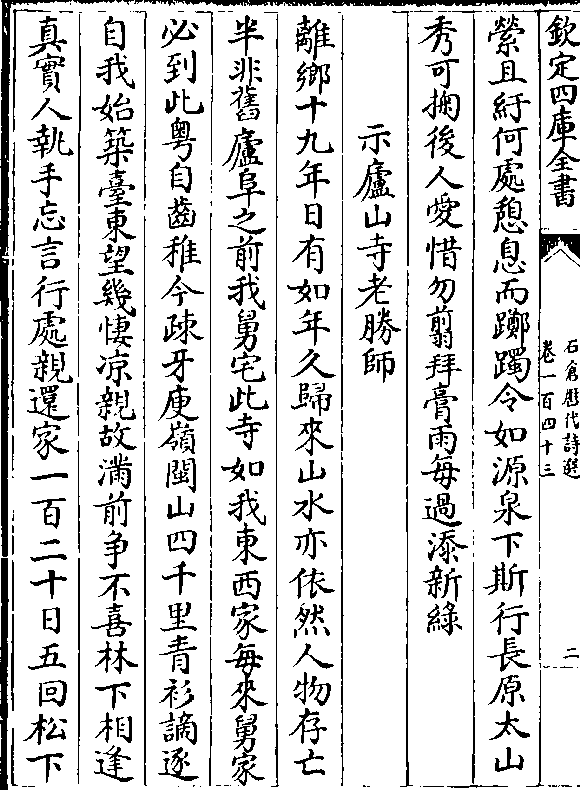 欽定四庫全書
石倉歷代詩選
卷一百四十三
二
縈且紆何處憩息而躑躅令如源泉下斯行長原太山
秀可掬後人愛惜勿翦拜膏雨每過添新綠
示廬山寺老勝師
離鄉十九年日有如年久歸來山水亦依然人物存亡
半非舊廬阜之前我舅宅此寺如我東西家每來舅家
必到此粤自齒稚今疎牙庾嶺閩山四千里青衫謫逐
自我始築臺東望幾悽涼親故滿前争不喜林下相逢
真實人執手忘言行處親還家一百二十日五回松下